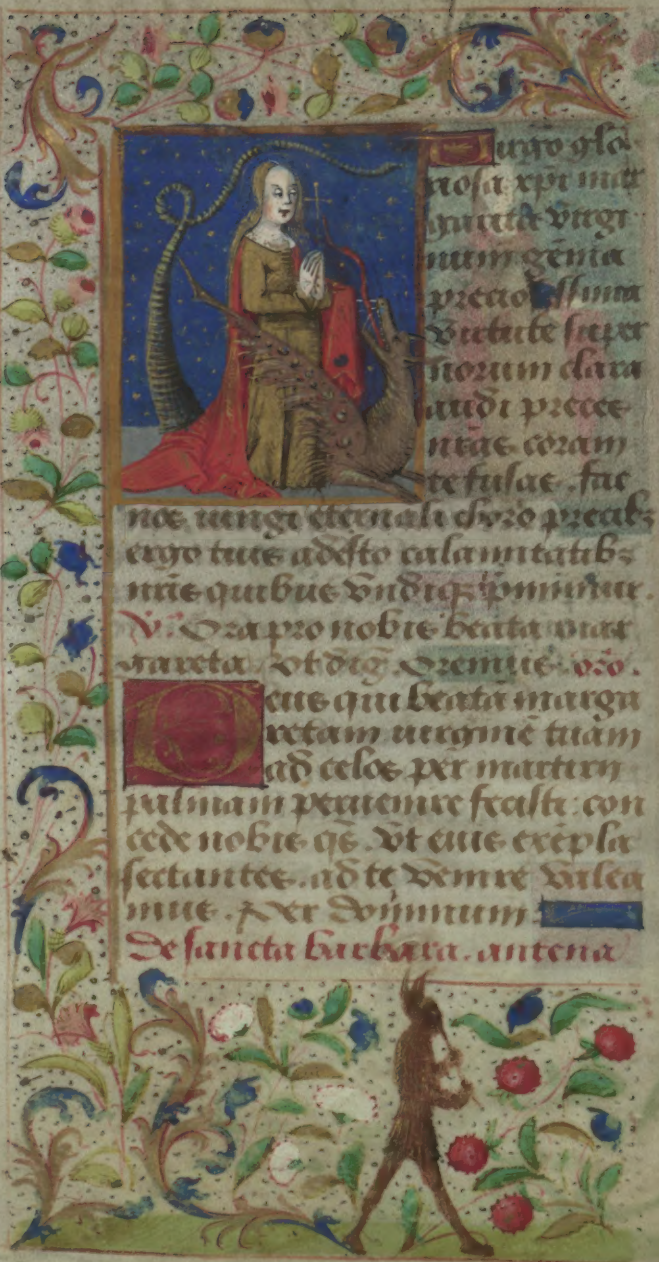 Uirgo glo
riosa xpi mar
garita virgi
num gēma
preciosissima
virtute super
norum clara
audi preces
nr̄as coram
te fusas . fac
nos iungi eternali choro precibꝫ
ergo tuis adesto calamitatibꝫ
nr̄is quibus vndiqꝫ p̄mimur .
V̊. Ora pro nobis beata mar
gareta . Vt diḡ . Oremus . oro̅ .
Deus qui beata marga
retam uirginē tuam
ad celos per martirii
palmam peruenire fecisti : con
cede nobis q̄s . vt eius exēpla
sectantes . ad te venire valea
mus . Per dominum .
De sancta barbara . antena